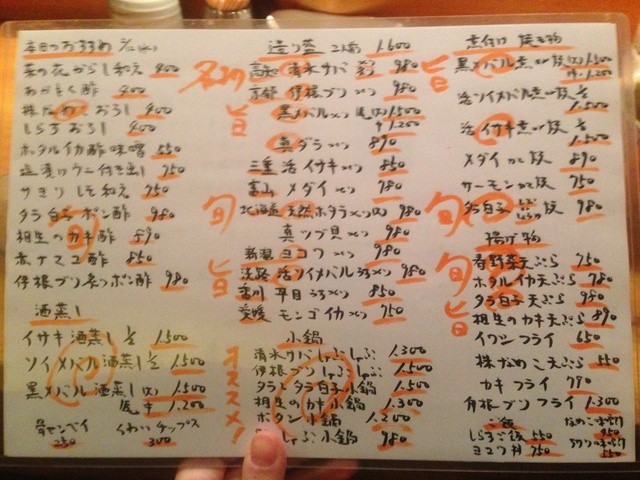 本日のおすすめ 2/12(水)
菜の花からし和え 400
めかぶ酢 400
株なめこおろし 400
しらすおろし 400
ホタルイカ酢味噌 550
塩漬けウニ付き出し 750
サヨリしそ和え 750
タラ白子ポン酢 980
相生のカキ酢 890
赤ナマコ酢 850
伊根ブリ炙りポン酢 980
酒蒸し
イサキ酒蒸し 1/2 1.500
ソイメバル酒蒸し 1/2 1.500
黒メバル酒蒸し (大) 1.500
尾 中 1.200
骨センベイ 250
くわいチップス 300
旬
名物
旨
旬
旨
オススメ!
造り盛 2人前 1.600
高知 清水サバ 980
京都 伊根ブリ 造り 980
黒メバル造り 尾 (大) 1.500
中 1.200
真ダラ造り 890
三重 活イサキ 850
富山 メダイ 造り 980
北海道 天然ホタテ造り 980
真ツブ貝 造り 980
新潟 ヨコワ 造り 980
淡路 活ソイメバル うす造り 980
香川 平目 うす造り 850
愛媛 モンゴイカ 造り 750
小鍋
清水サバしゃぶしゃぶ 1.300
伊根ブリしゃぶしゃぶ 1.500
タラとタラ白子小鍋 1.500
相生のカキ小鍋 1.300
ボタン小鍋 1.200
しゃぶ小鍋 980
煮付け 焼き物
旨
黒メバル煮or焼 (大) 1.500
中 1.200
活ソイメバル煮or焼 1/2 1.500
活イサキ煮or焼 1/2 1.500
メダイ かま焼 890
サーモンかま焼 750
旬
タラ白子 焼 980
揚げ物
旬
旨
春野菜天ぷら 750
ホタルイカ天ぷら 780
タラ白子天ぷら 980
相生のカキ天ぷら 890
イワシフライ 650
株なめこ天ぷら 550
カキフライ 790
伊根ブリフライ 1.300
ご飯
しらすご飯 550
ヨコワ丼 750
なめこ味噌汁
550